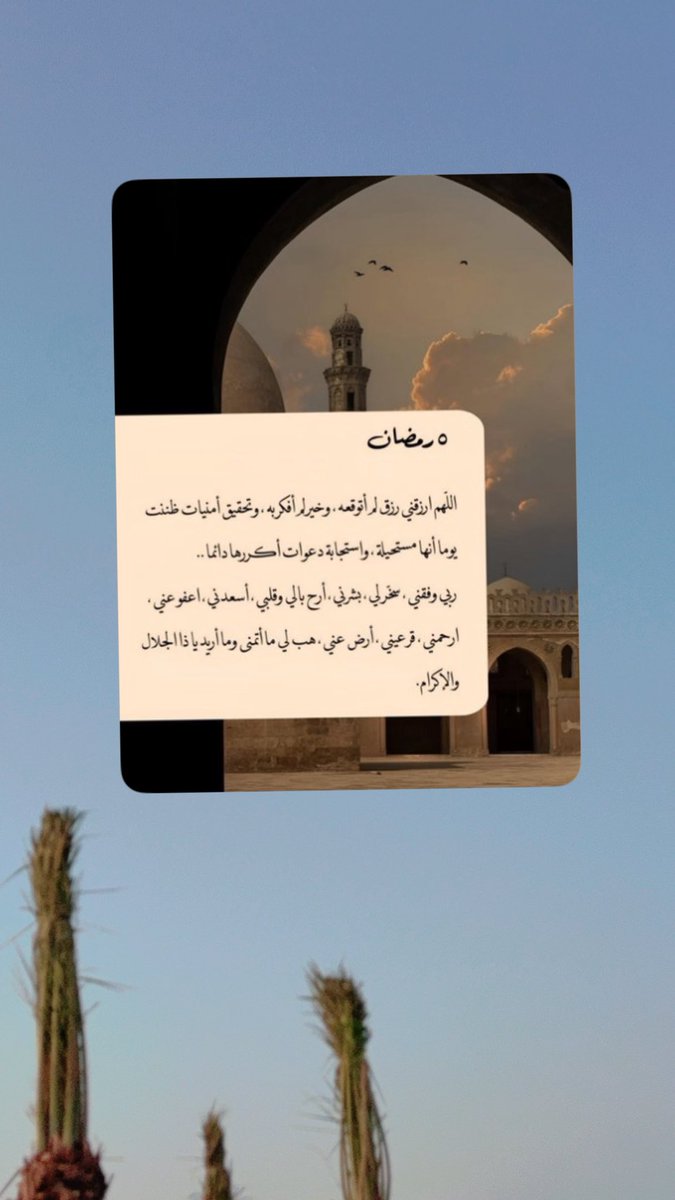 ٥ رمضان
اللّهم ارزقني رزق لم أتوقعه ، وخير لم أفكر به ، وتحقيق أمنيات ظننت
يوما أنها مستحيلة ، واستجابة دعوات أكررها دائما ..
ربي وفقني ، سخّر لي ، بشرني ، أرح بالي وقلبي ، أسعدني ، اعفو عني ،
ارحمني ، قر عيني ، أرض عني ، هب لي ما أتمنى وما أريد يا ذا الجلال
والإكرام.